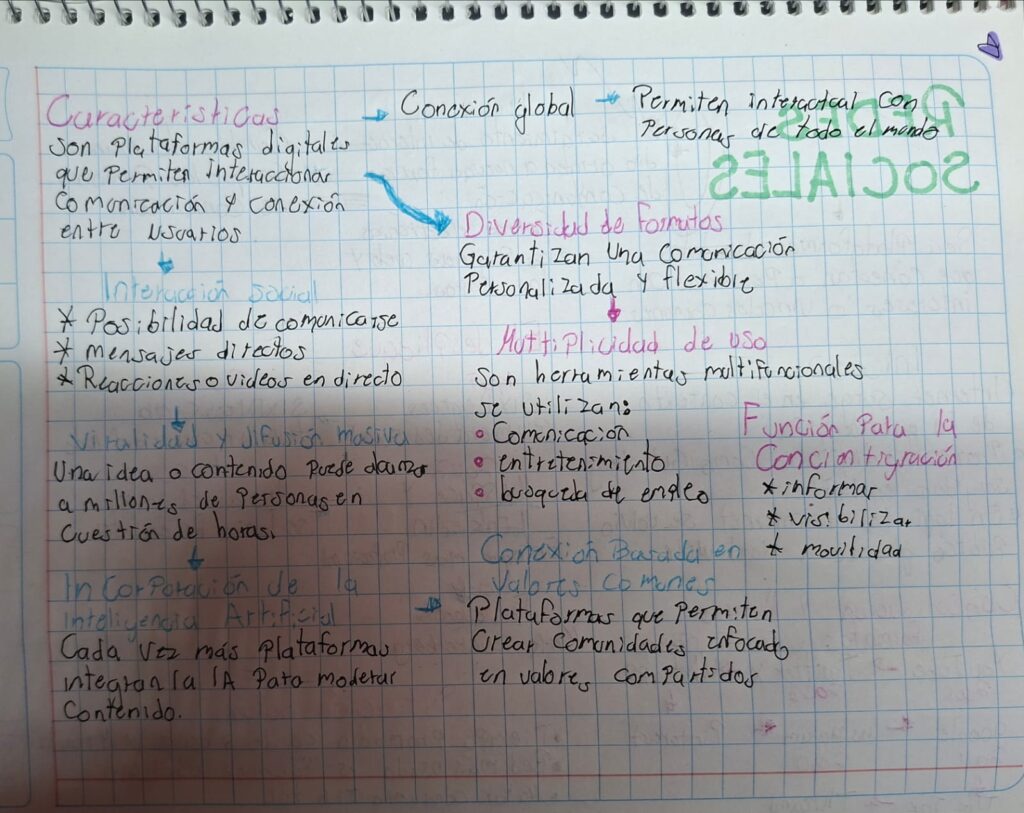 Características
Son Plataformas digitales
que Permiten interaccionar
Comonicación y conexión
entre usuarios
Conexión global
Permiten interactual con
Personas de todo el mundo
REDES
SOCIALES
Interacción social
* Posibilidad de comonicarse
* mensajes directos
* Reacciones o videos en directo
Viralidad y difusión masiva
Una idea o contenido puede
a millones de Personas en
Cuestión de horas.
Incorporación de la
inteligencia Artificial
Cada vez más plataformas
integran la IA Para moderar
Contenido.
Diversidad de Formatos
Garantizan Una Comonicación
Personalizada y flexible
Multiplicidad de uso
Son herramientas multifuncionales
se utilizan:
• Comonicación
• entretenimiento
• busqueda de empleo
Conexión Basada en
Valores Comunes
Plataformas que Permiten
Crear Comunidades enfocado
en valores compartidos
Función Para la
*informar
*visibilizar
* movilidad